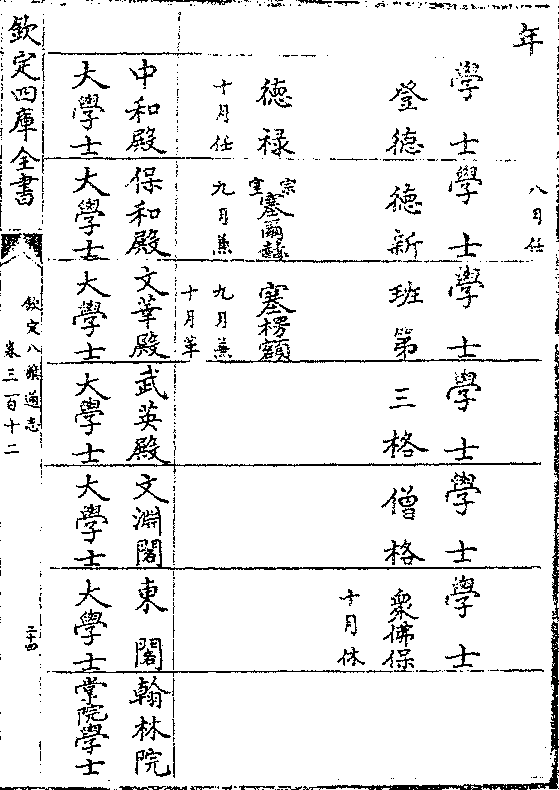 年
八月任
學士 學士 學士 學士 學士 學士
登德 德新 班第 三格 僧格 衆佛保
十月休
德祿 宗室塞爾赫 塞楞額
十月任 九月兼 九月兼
十月革
中和殿 保和殿 文華殿 武英殿 文淵閣 東閣 翰林院
大學士 大學士 大學士 大學士 大學士 大學士 掌院學士
欽定四庫全書
欽定八旗通志
卷三百十二
二十四